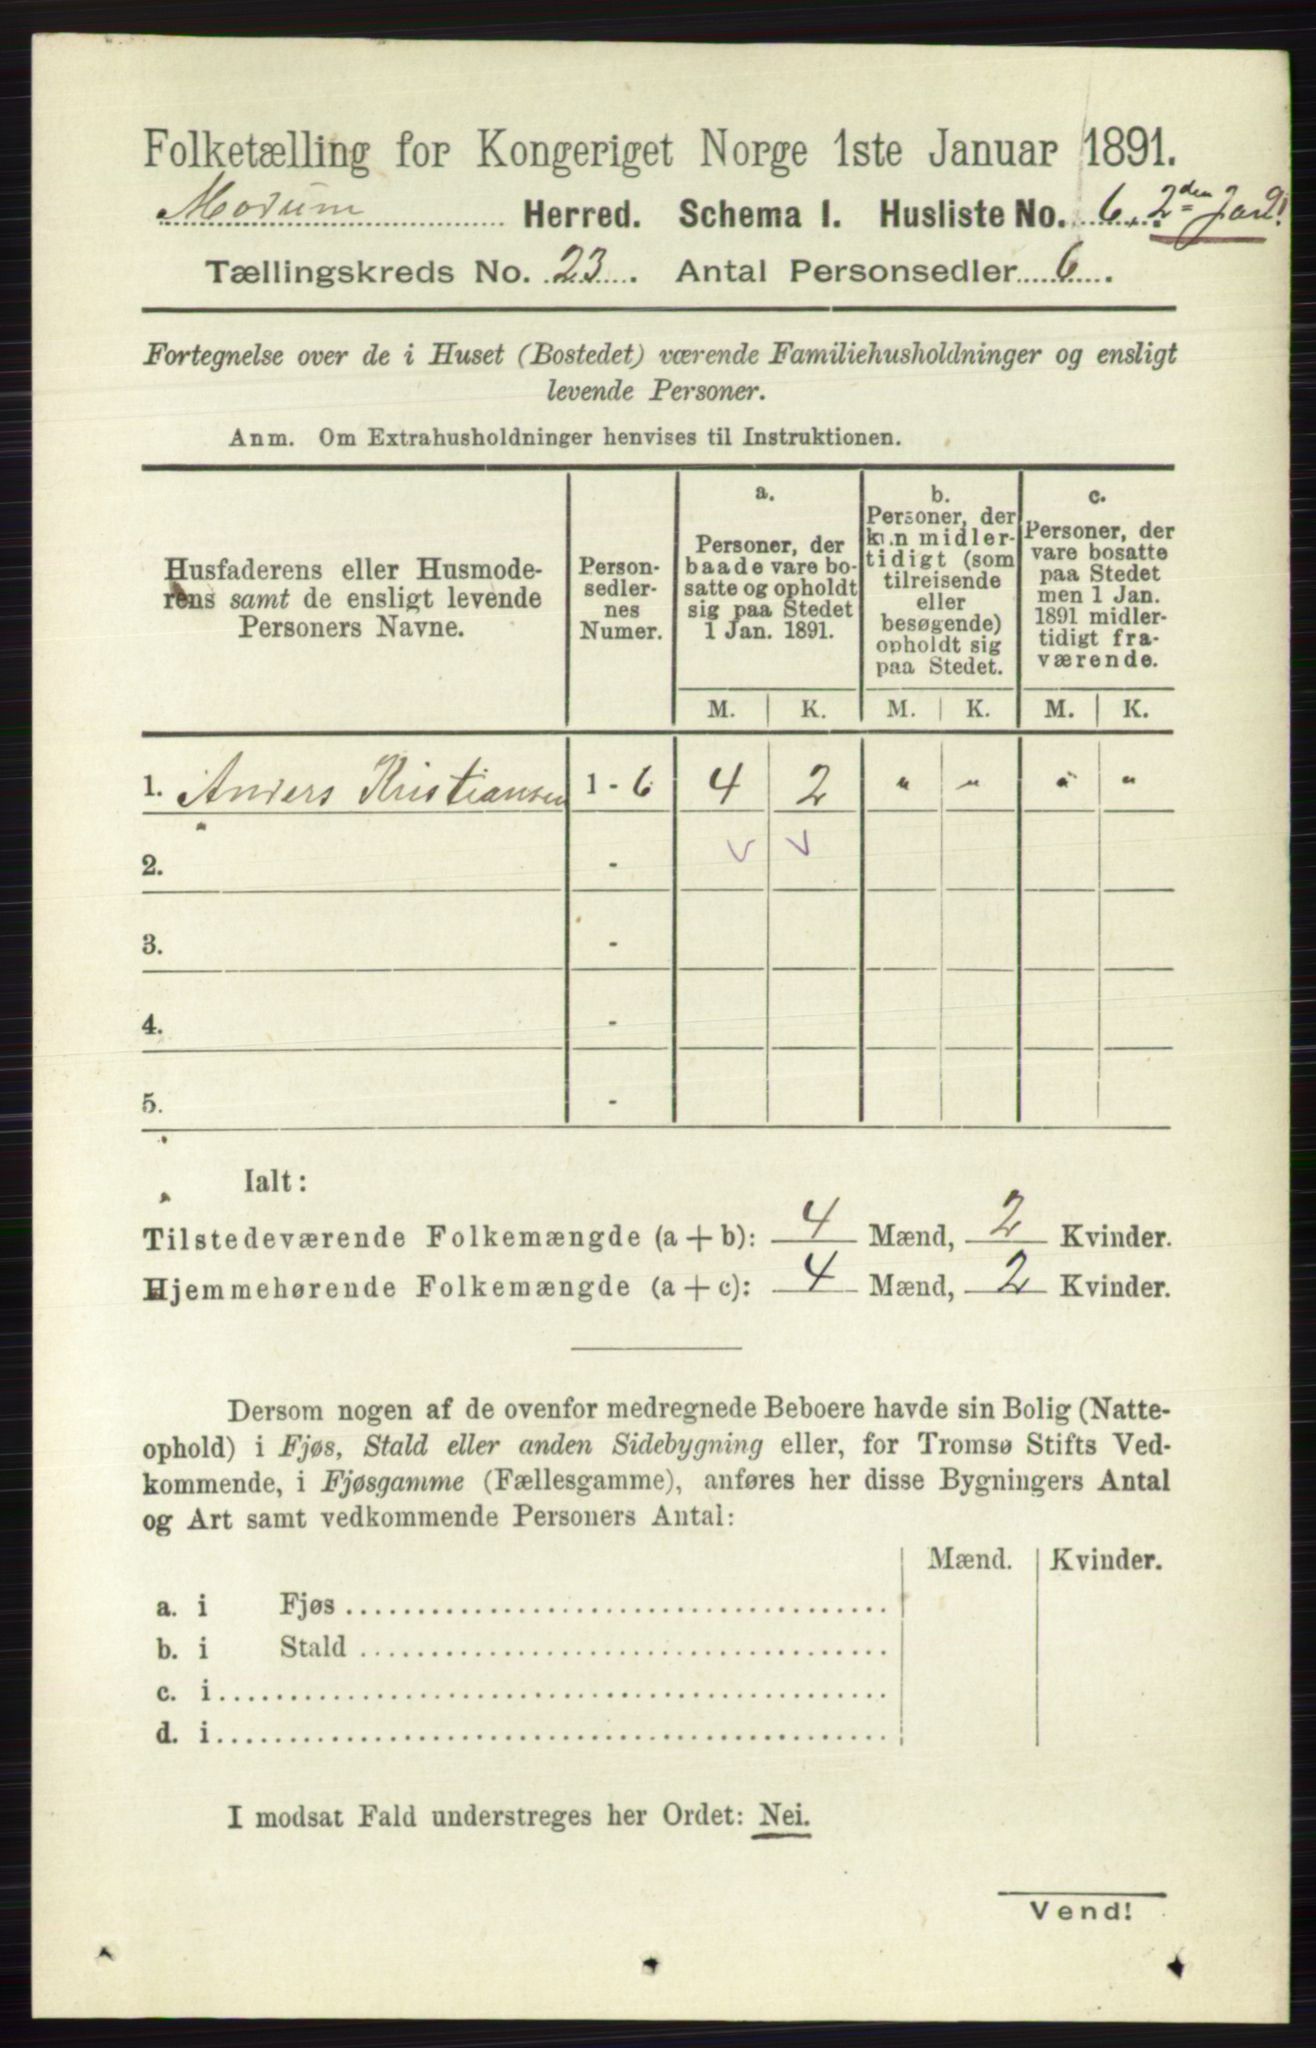 Folketælling for Kongeriget Norge 1ste Januar 1891.
Modum Herred. Schema I. Husliste No. 6. 2den Jan!
Tællingskreds No. 23. Antal Personsedler 6.
Fortegnelse over de i Huset (Bostedet) værende Familiehusholdninger og ensligt
levende Personer.
Anm. Om Extrahusholdninger henvises til Instruktionen.
Husfaderens eller Husmode-
rens samt de ensligt levende
Personers Navne.
Person-
sedler-
nes
Numer.
a.
Personer, der
baade vare bo-
satte og opholdt
sig paa Stedet
1 Jan. 1891.
b.
Personer, der
kun midler-
tidigt (som
tilreisende
eller
besøgende)
opholdt sig
paa Stedet.
c.
Personer, der
vare bosatte
paa Stedet
men 1 Jan.
1891 midler-
tidigt fra-
værende.
M. K. M. K. M. K.
1. Anders Kristiansen 1 - 6 4 2 " " " "
2. - v v
3. -
4. -
5. -
Ialt:
Tilstedeværende Folkemængde (a + b): 4 Mænd, 2 Kvinder.
Hjemmehørende Folkemængde (a + c): 4 Mænd, 2 Kvinder.
Dersom nogen af de ovenfor medregnede Beboere havde sin Bolig (Natte-
ophold) i Fjøs, Stald eller anden Sidebygning eller, for Tromsø Stifts Ved-
kommende, i Fjøsgamme (Fællesgamme), anføres her disse Bygningers Antal
og Art samt vedkommende Personers Antal:
Mænd. Kvinder.
a. i Fjøs
b. i Stald
c. i
d. i
I modsat Fald understreges her Ordet: Nei.
Vend!